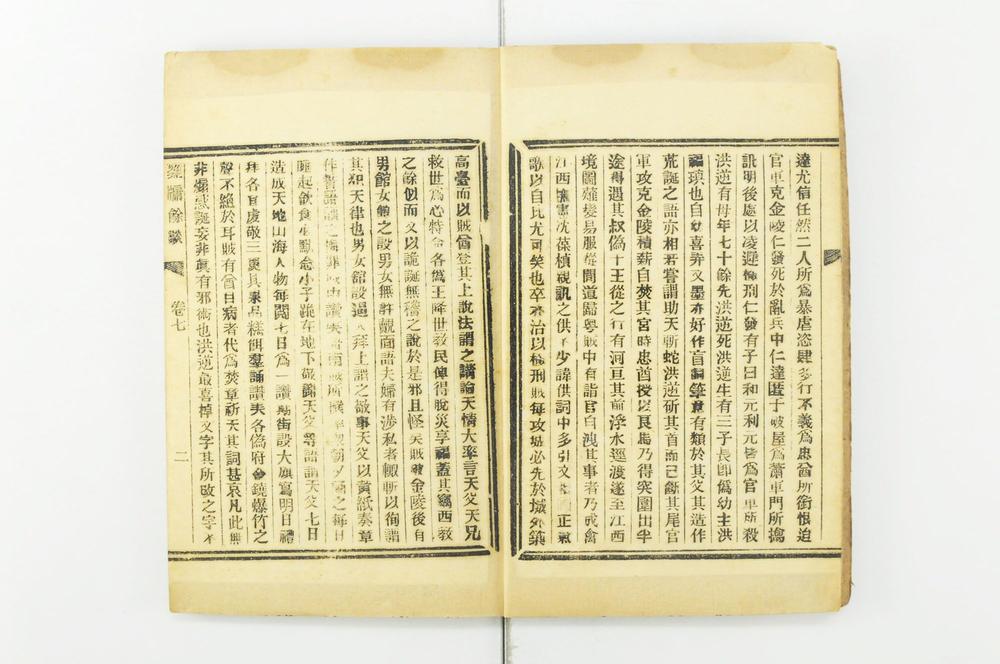 達尤信任然二人所為暴虐恣肆多行不義為忠酋所銜恨迨
官軍克金陵仁發死於亂兵中仁達匿于破屋為蕭軍門所擒
訊明後處以凌遲極刑仁發有子曰和元利元皆為官軍所殺
洪逆有母年七十餘先洪逆死洪逆生有三子長即偽幼主洪
福瑱也自幼喜弄文墨亦好作盲詞筆意有類於其父其造作
荒誕之語亦相若嘗謂助天斬蛇洪逆斫其首而己斷其尾官
軍攻克金陵積薪自焚其宮時忠酋授以良馬乃得突圍出半
途得遇其叔偽干王從之行有河亘其前浮水逕渡遂至江西
境圖薙髮易服從間道歸粵賊中有詣官自洩其事者乃成禽
江西 沈葆楨親訊之供不少諱供詞中多引文 正氣
歌以自比尤可笑也卒亦治以極刑賊每攻城必先於城外築
高臺而以賊酋登其上說法謂之講論天情大率言天父天兄
救世為心特令各偽王降世敎民俾得脫災享福蓋其竊西敎
之餘似而又以詭誕無稽之說於是邪且怪矣賊踞金陵後有
男館女館之設男女無許覿面語夫婦有涉私者輒斬以徇謂
其犯天律也男女館設逼人拜上謂之敬事天父以黃紙奏章
作讚語誦之 朝夕誦之每日
睡起飲食必默念小子跪在地下敬謝天父等語謂天父七日
造成天地山海人物每閱七日為一讚期街設大旗寫明日禮
拜各宜虔敬三更具果品糕餌羣誦讚美各偽府 鐃爆竹之
聲不絕於耳賊有 曰病者代為焚章祈天其詞甚哀凡此無
非 誕妄非真有邪術也洪逆最喜掉文字其所改之字
甕牖餘談
卷七
二